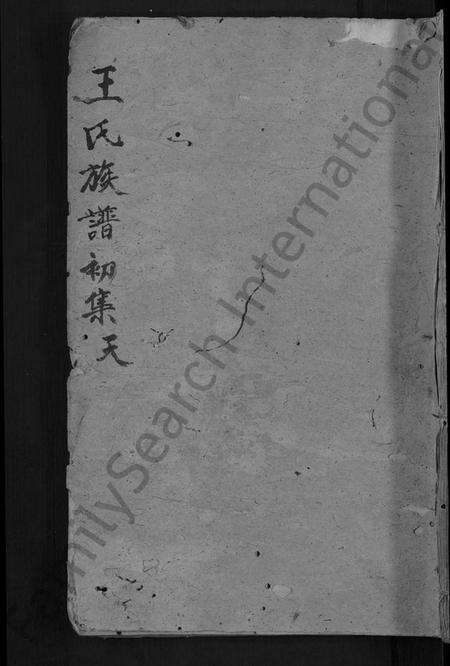 王氏族譜初集天
FamilySearch International